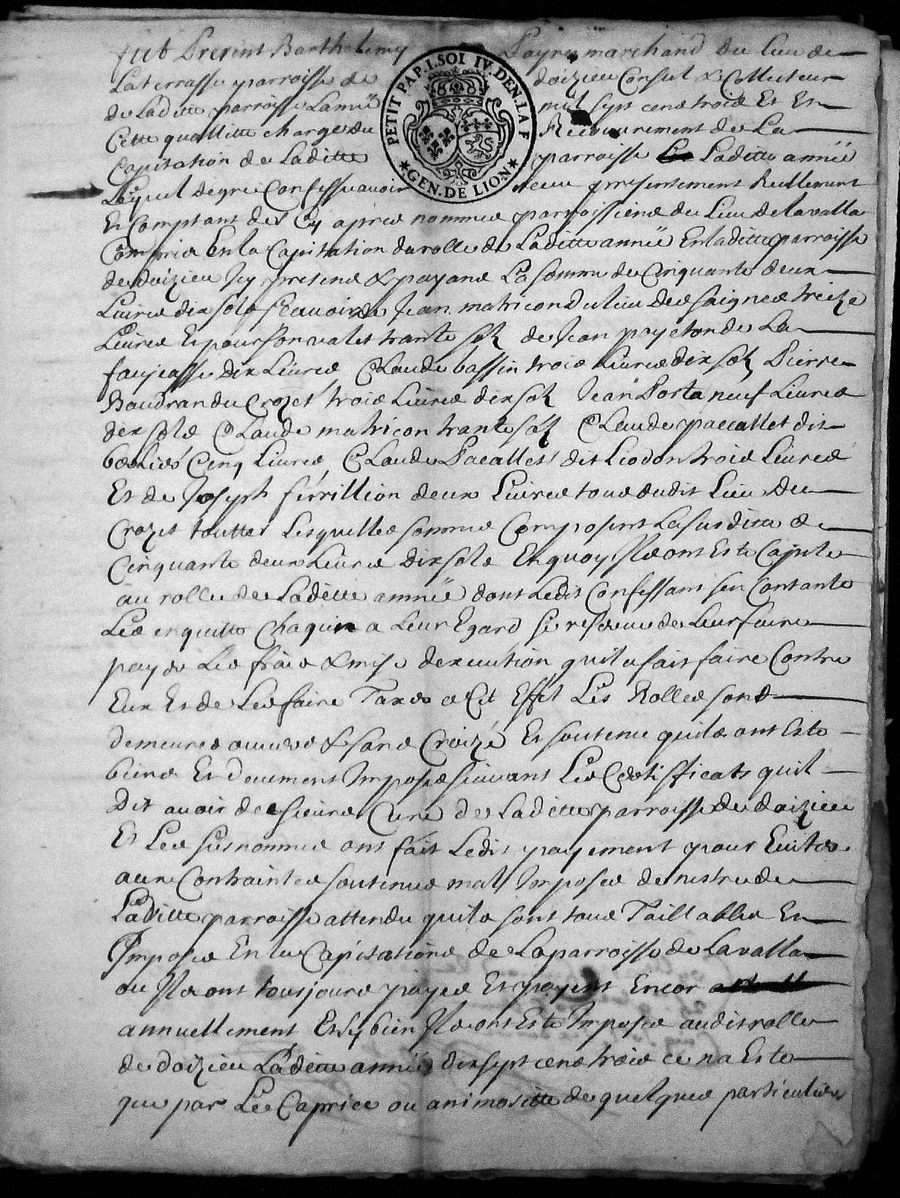 fut Present Barthelemy Payre marchand du lieu de
Laterrasse parroisse de doizieu Consul & Collecteur
de Laditte parroisse Lannée mil sept cens trois Et En
Cette quallitte charge du Recouvrement de La
Capitation de Laditte parroisse Laditte année
PETIT PAP. I. SOL IV. DEN. LA F
GEN. DE LION
Lequel de gre Confesse avoir receu presentement Reellement
Et Comptant des Cy apres nommes parroissiens du Lieu de Lavalla
Compris En la Capitation du rolle de Laditte année En laditte parroisse
de doizieu Icy presens & payans La somme de Cinquante deux
Livres dix sols scavoir de Jean matricon du lieu des saignes treize
Livres Et pour son valet trante sols de Jean payeton de La
faujasse dix Livres Claude bassin trois Livres dix sols Pierre
Baudran du Crozet trois Livres dix sols Jean Porta neuf Livres
dix sols Claude matricon trante sols Claude paccallet dit
Cinq Livres Claude Pacallet dit Liodon trois Livres
Et de Joseph ferrillion deux Livres tous dudit Lieu du
Crozet touttes Lesquelles sommes Composent La susditte de
Cinquante deux Livres dix sols En quoy Ils ont Este Cottises
au rolle de Laditte année dont Ledit Confessant sen Contante
Les en quitte Chaqun a Leur Egard se reserve de Leur faire
payer Les frais & mise dexecution quil a fait faire Contre
Eux Et de Les faire Taxer a Cet Effet Les Rolles sont
demeures & sans Croizé Et soutenu quils ont Este
biens Et deument Imposes suivant Les Certifficats quil
Dit avoir de sieurs Curé de Laditte parroisse de doizieu
Et Les susnommes ont fait Ledit payement pour Eviter
aux Contraintes soutenus mal Imposes de
Laditte parroisse attendu quils sont tous Taillables Et
Imposes En La Capitation de La parroisse de Lavalla
ou Ils ont tousjours payes Et payent Encor
annuellement Et sy bien Ils ont Este Imposes audit rolle
de doizieu Laditte année dix sept cens trois ce na Este
que par Les Caprice ou animositte de quelques particuliers